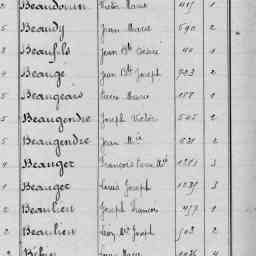 Beaudouin Victor Marie 417 1
5 Beaudy Jean Marie 590 2
3 Beaufils Jean Bte 40 1
4 Beauge Jean Bte Joseph 923 2
5 Beaugeais Pierre Marie 158 1
5 Beaugendre Joseph Victor 545 2
5 Beaugendre Jean Mie 521 2
4 Beauget François Mie 3
1 Beauget Louis Joseph 3
2 Beaulieu Joseph François 477 1
2 Beaulieu Joseph 502 2
4